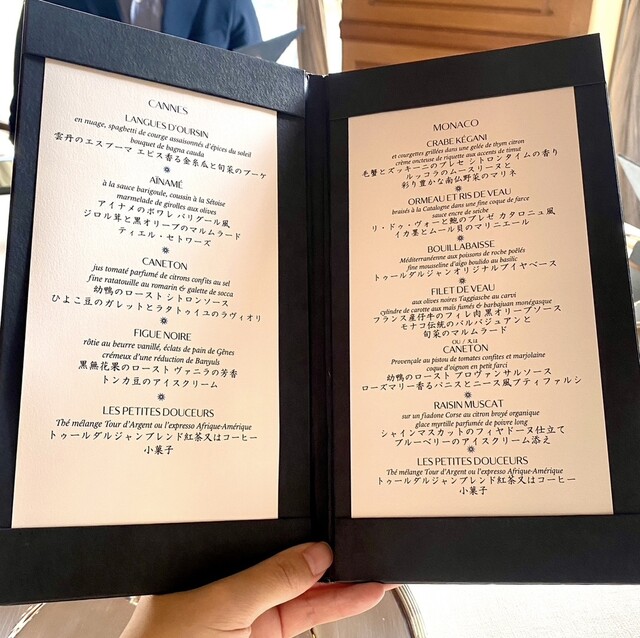 CANNES
LANGUES D'OURSIN
en nuage, spaghetti de courge assaisonnés d'épices du soleil
bouquet de bagna cauda
雲丹のエスプーマ エピス香る金糸瓜と旬菜のブーケ
AÏNAMÉ
à la sauce barigoule, coussin à la Sétoise
marmelade de girolles aux olives
アイナメのポワレ バリグール風
ジロル茸と黒オリーブのマルムラード
ティエル・セトワーズ
CANETON
jus tomaté parfumé de citrons confits au sel
fine ratatouille au romarin & galette de socca
幼鴨のロースト シトロンソース
ひよこ豆のガレットとラタトゥイユのラヴィオリ
FIGUE NOIRE
rôtie au beurre vanillé, éclats de pain de Gênes
crémeux d'une réduction de Banyuls
黒無花果のロースト ヴァニラの芳香
トンカ豆のアイスクリーム
LES PETITES DOUCEURS
Thé mélange Tour d'Argent ou l'expresso Afrique-Amérique
トゥールダルジャンブレンド紅茶又はコーヒー
小菓子
MONACO
CRABE KÉGANI
et courgettes grillées dans une gelée de thym citron
crème onctueuse de riquette aux accents de timut
毛蟹とズッキーニのプレセ シトロンタイムの香り
ルッコラのムースリーヌと
彩り豊かな南仏野菜のマリネ
ORMEAU ET RIS DE VEAU
braisés à la Catalogne dans une fine coque de farce
sauce encre de seiche
リ・ドゥ・ヴォーと鮑のブレゼ カタロニュ風
イカ墨とムール貝のマリニエール
BOUILLABAISSE
Méditerranéenne aux poissons de roche poêlés
fine mousseline d'aïgo boulido au basilic
トゥールダルジャンオリジナルブイヤベース
FILET DE VEAU
aux olives noires Taggiasche au carvi
cylindre de carotte aux maïs fumés & barbajuan monégasque
フランス産仔牛のフィレ肉 黒オリーブソース
モナコ伝統のバルバジュアンと
旬菜のマルムラード
OU / 又は
CANETON
Provençale au pistou de tomates confites et marjolaine
coque d'oignon et petit farci
幼鴨のロースト プロヴァンサルソース
ローズマリー香るパニスとニース風プティファルシ
RAISIN MUSCAT
sur un fiadone Corse au citron broyé organique
glace myrtille parfumée de poivre long
シャインマスカットのフィヤドーヌ仕立て
ブルーベリーのアイスクリーム添え
LES PETITES DOUCEURS
Thé mélange Tour d'Argent ou l'expresso Afrique-Amérique
トゥールダルジャンブレンド紅茶又はコーヒー
小菓子